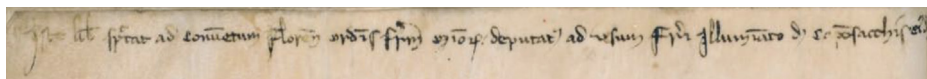 Iste lib̃ spectat ad conuentum Floreñ ordĩs fr̃m mĩoꝝ deputat9 ad usum Fr̃is Illuminato d̃